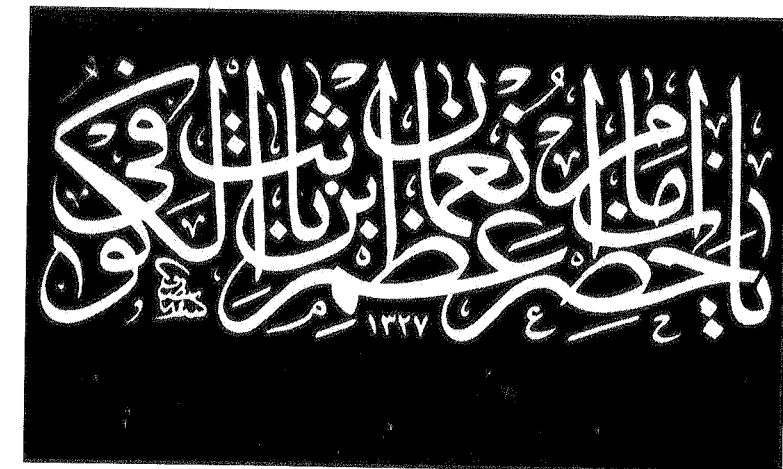 يا حضرت امام اعظم نعمان ابن ثابت الكوفى
١٣٢٧